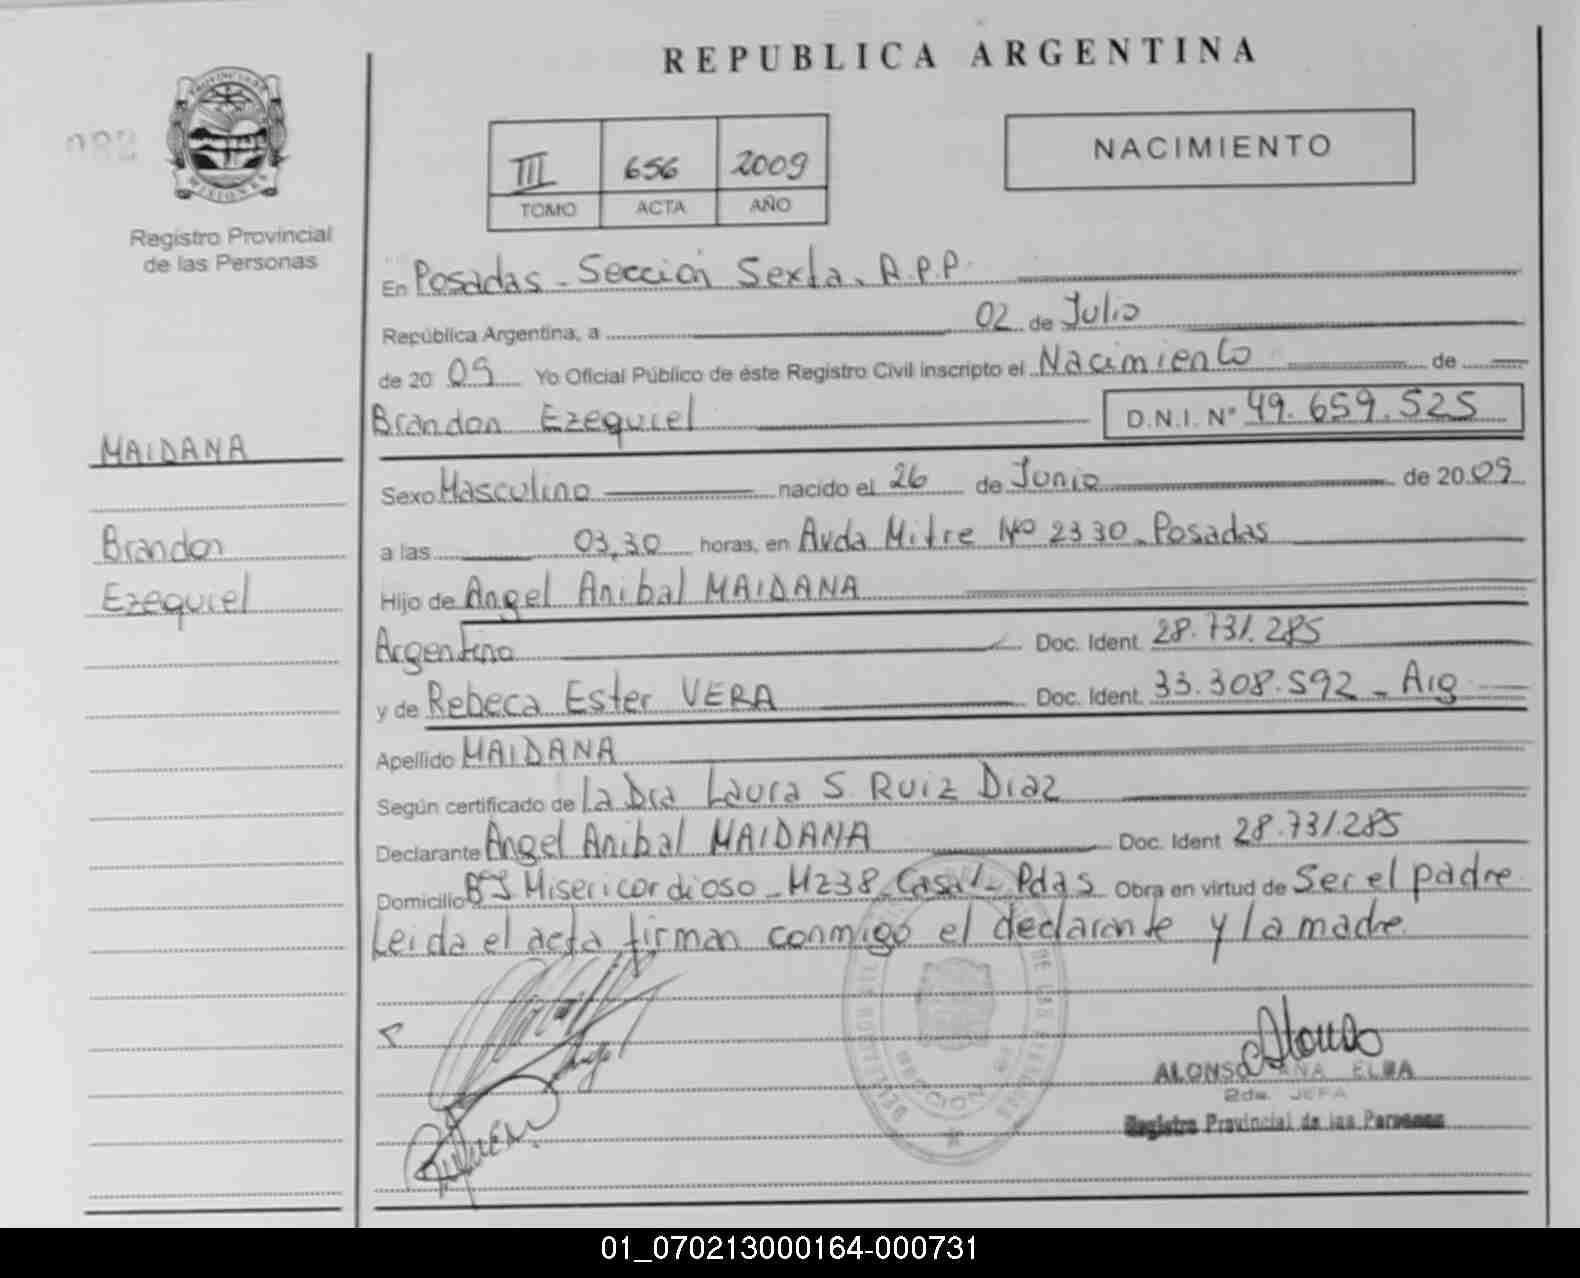 REPUBLICA ARGENTINA
PROVINCIA DE
MISIONES
Registro Provincial
de las Personas
III 656 2009
TOMO ACTA AÑO
NACIMIENTO
En Posadas - Sección Sexta. R.P.P.
República Argentina, a 02 de Julio
de 20 09 Yo Oficial Público de éste Registro Civil inscripto el Nacimiento de
Brandon Ezequiel D.N.I. Nº 49.659.525
MAIDANA
Sexo Masculino nacido el 26 de Junio de 20 09
Brandon
a las 03,30 horas, en Avda Mitre Nº 2330 - Posadas
Ezequiel
Hijo de Angel Anibal MAIDANA
Argentino Doc. Ident. 28.731.285
y de Rebeca Ester VERA Doc. Ident. 33.308.592 - Arg
Apellido MAIDANA
Según certificado de La Dra Laura S. Ruiz Diaz
Declarante Angel Anibal MAIDANA Doc. Ident 28.731.285
Domicilio Misericordioso - Mz38 Casa 1 - Pdas Obra en virtud de Ser el padre
Leida el acta firman conmigo el declarante y la madre.
ALONSO ANA ELBA
2da. JEFA
Registro Provincial de las Personas
01_070213000164-000731